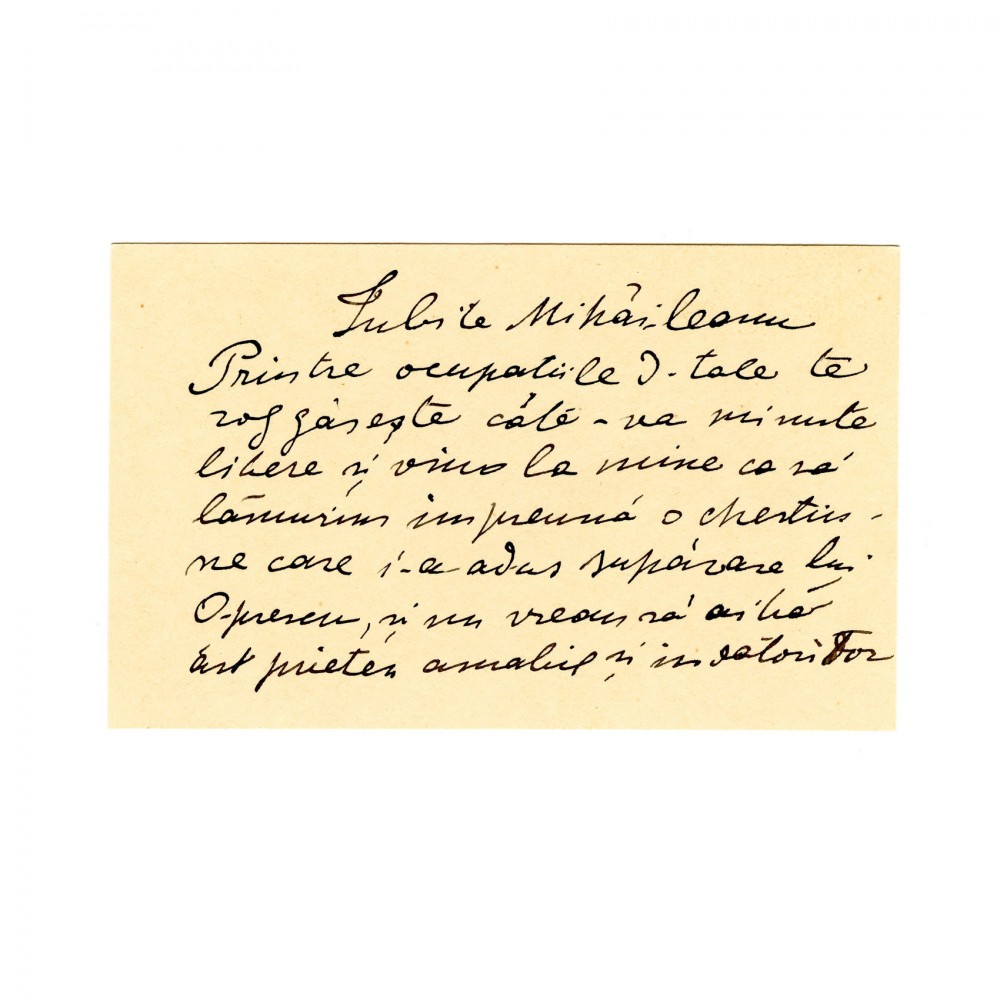 Iubite Mihăileanu
Printre ocupațiile D-tale te
rog găsește câte-va minute
libere și vino la mine ca să
lămurim impreună o chestiu-
ne care i-a adus supărare lui
Oprescu, și nu vreau să aibă
ast prieten amabil și indatoritor